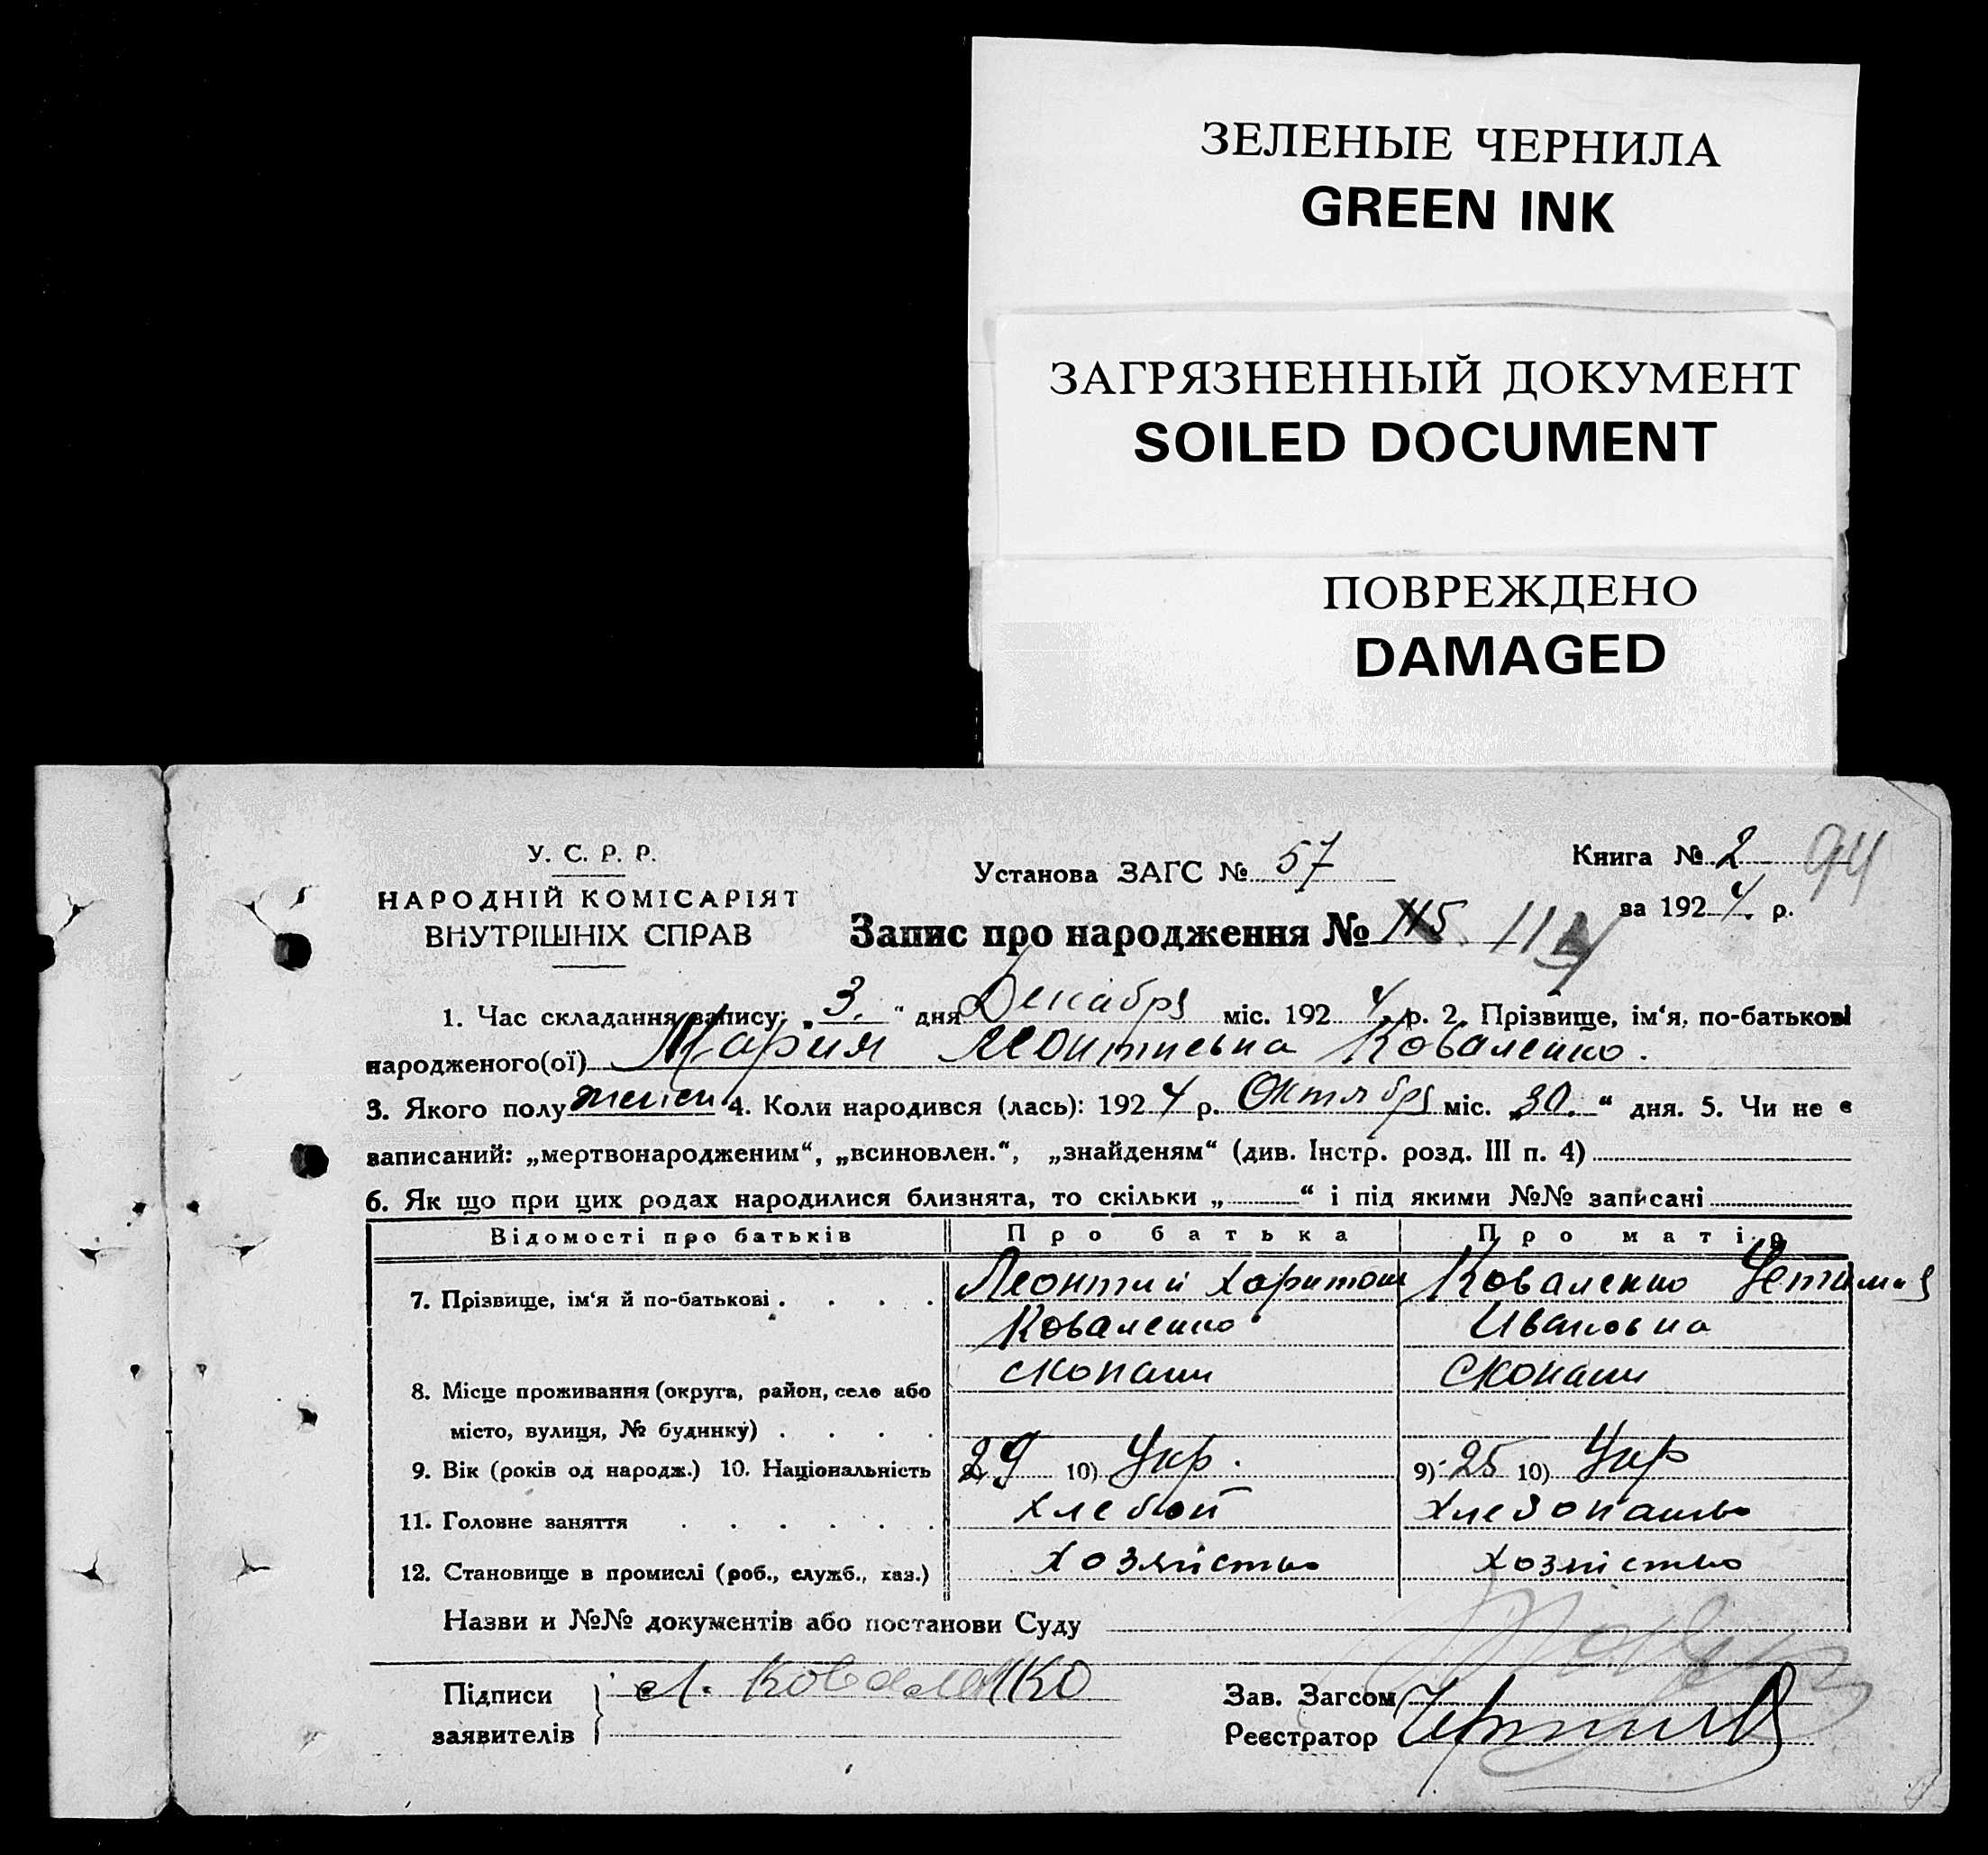 ЗЕЛЕНЫЕ ЧЕРНИЛА
GREEN INK
ЗАГРЯЗНЕННЫЙ ДОКУМЕНТ
SOILED DOCUMENT
ПОВРЕЖДЕНО
DAMAGED
У. С. Р. Р.
НАРОДНІЙ КОМІСАРІЯТ
ВНУТРІШНІХ СПРАВ
Установа ЗАГС № 57
Книга № 2 94
за 1924 р.
Запис про народження № 115 114
1. Час складання запису: „3.“ дня Декабря міс. 1924 р. 2. Прізвище, ім‘я, по-батькові
народженого(ої) Мария Леонтиевна Коваленко.
3. Якого полу женск 4. Коли народився (лась): 1924 р. Октября міс. „30.“ дня. 5. Чи не є
записаний: „мертвонародженим“, „всиновлен.“, „знайденям“ (див. Інстр. розд. III п. 4)
6. Як що при цих родах народилися близнята, то скільки „ “ і під якими №№ записані
Відомості про батьків Про батька Про матір
7. Прізвище, ім‘я й по-батькові . . . . Леонтий Харитон Коваленко
Коваленко Ивановна
8. Місце проживання (округа, район, село або
місто, вулиця, № будинку) . . . .
9. Вік (років од народж.) 10. Національність 29 10) Укр. 9) 25 10) Укр
11. Головне заняття . . . . . .
12. Становище в промислі (роб., служб., хаз.) хозяйство хозяйство
Назви и №№ документів або постанови Суду
Підписи Л. Коваленко
заявителів
Зав. Загсом
Реєстратор